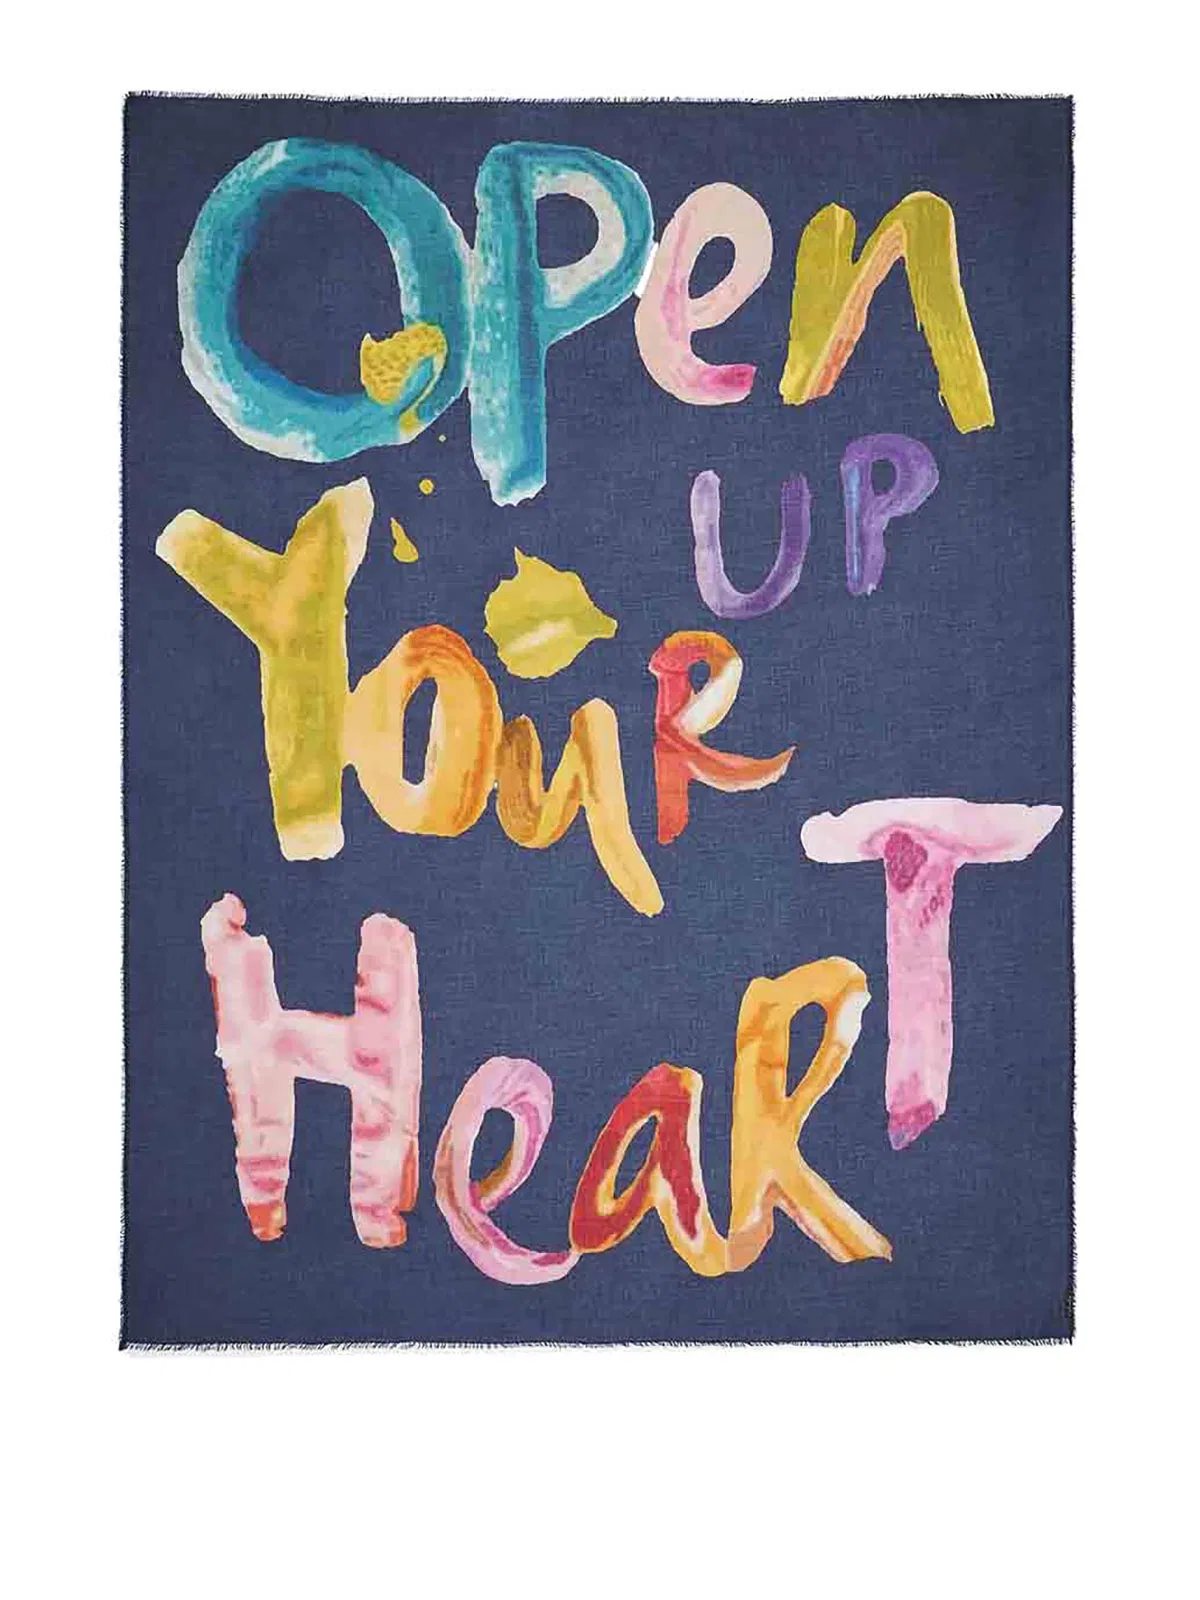 Open
UP
YouR
HeaRT